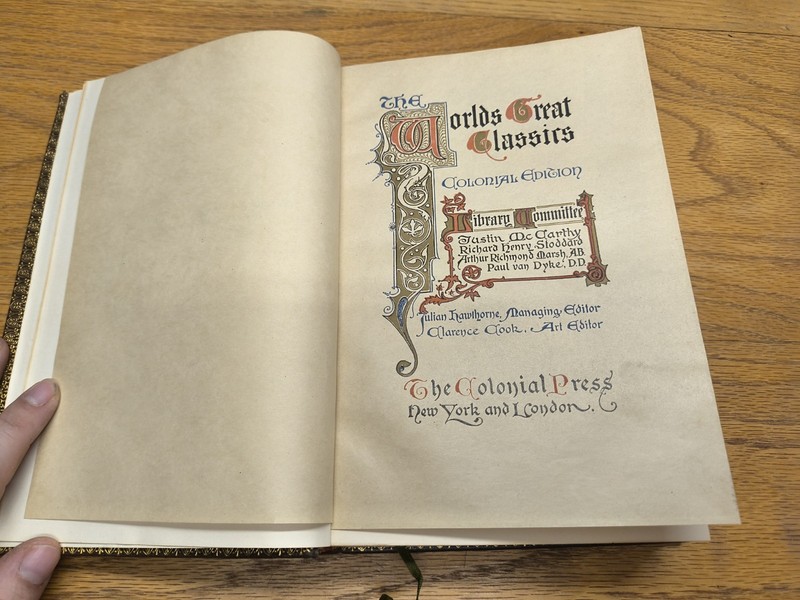 The
Worlds Great
Classics
Colonial Edition
Library Committee
Justin McCarthy
Richard Henry Stoddard
Arthur Richmond Marsh, A.B.
Paul van Dyke, D.D.
Julian Hawthorne, Managing Editor
Clarence Cook, Art Editor
The Colonial Press
New York and London.